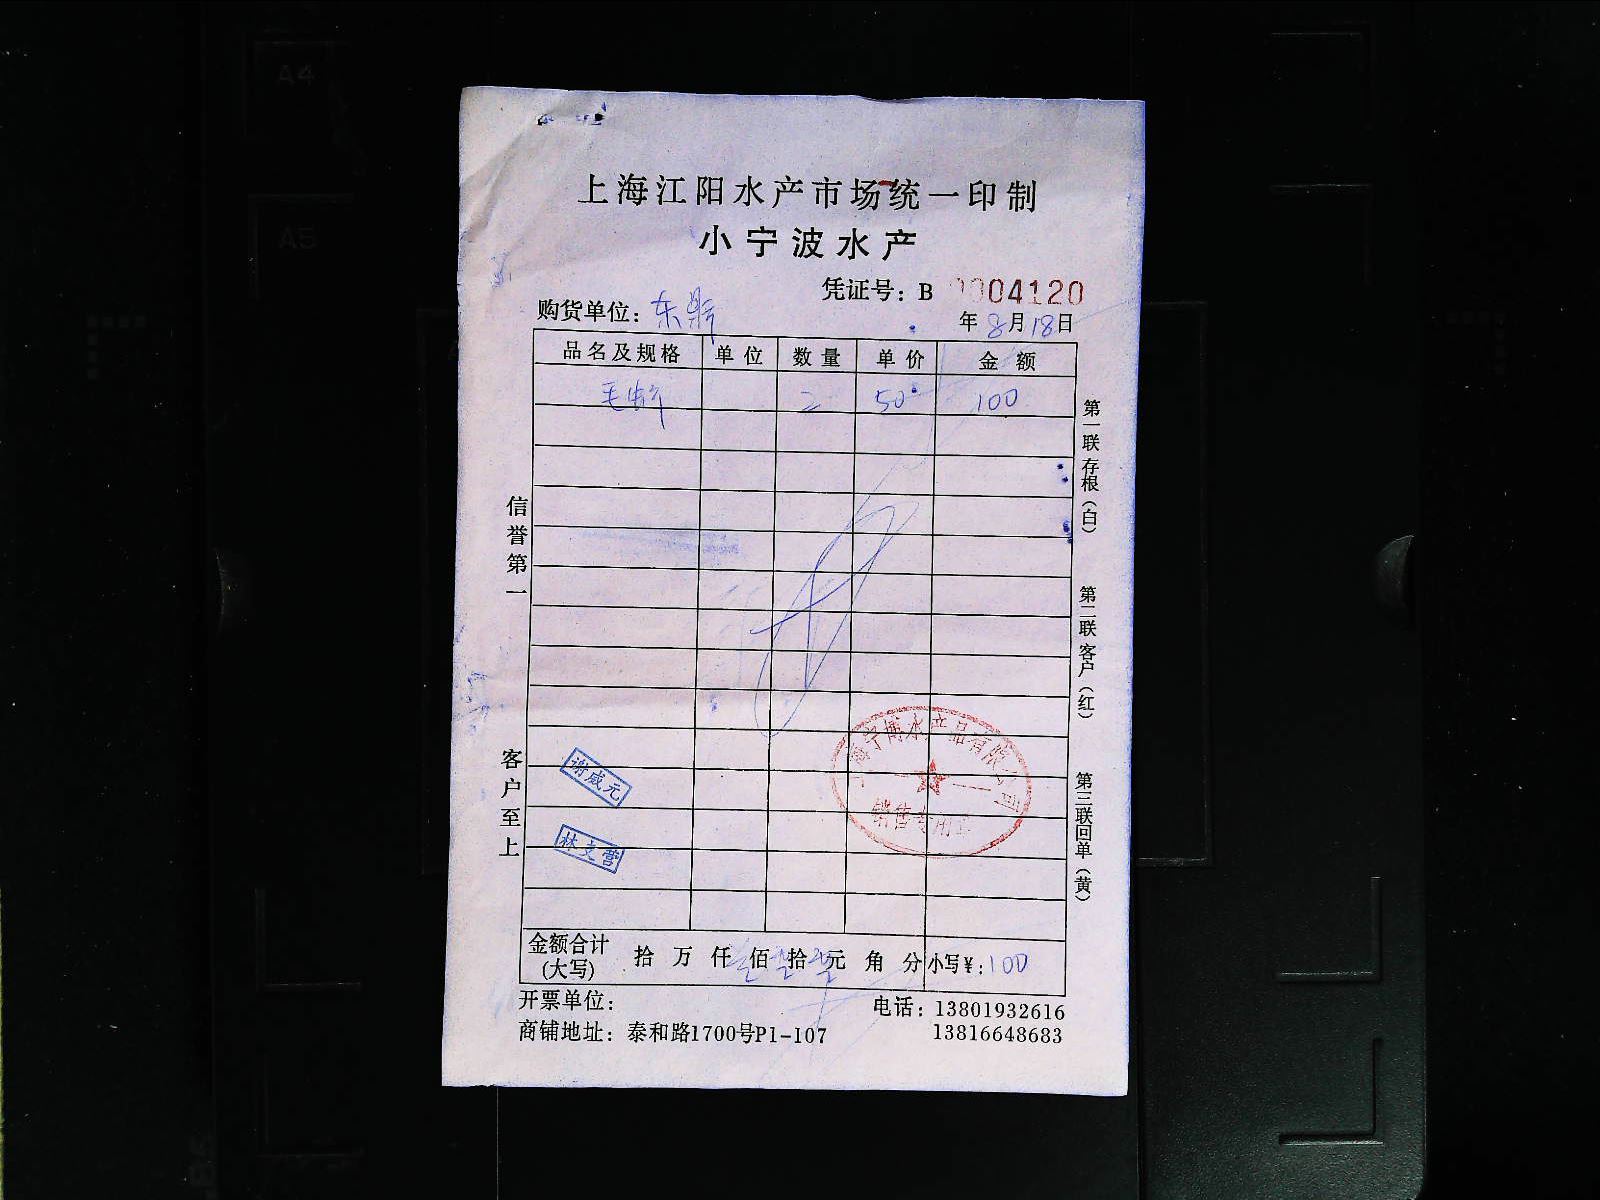 A4
A5
上海江阳水产市场统一印制
小宁波水产
凭证号：B 0004120
购货单位：东
年8月18日
品名及规格 单位 数量 单价 金额
毛 2 50 100
第一联存根（白）
第二联客户（红）
第三联回单（黄）
信誉第一
客户至上
上海宁博水产品有限公司
销售专用章
谢威元
林文营
金额合计（大写） 拾 万 仟 佰 拾 元 角 分 小写¥：100
开票单位：
电话：13801932616
商铺地址：泰和路1700号P1-107
13816648683